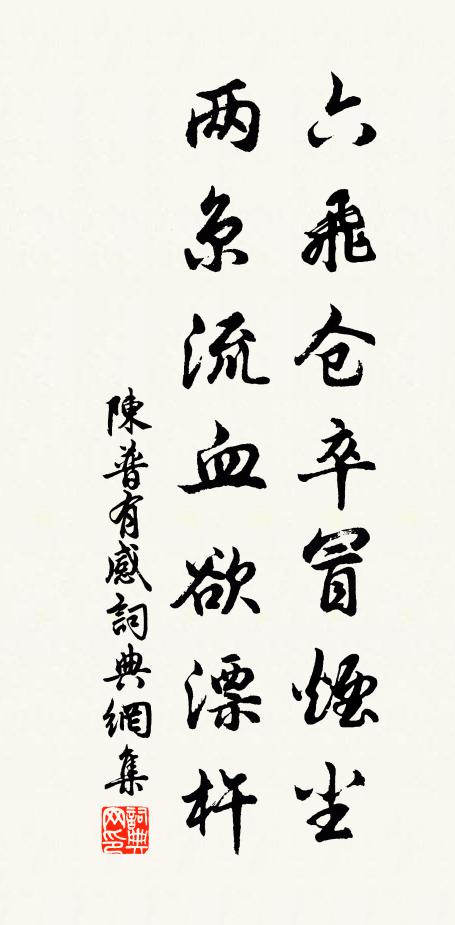 六飛仓卒冒煙尘
两京流血欲漂杵
陳普有感詞典網集
詞典网印